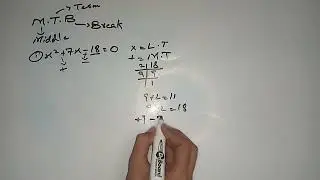 Term
M.T.B
Break
Middle
① x²+7x-18=0
+ -
x = L.T
± = M.T
2|18
9|9
1
9+2=11
=18
+9 -